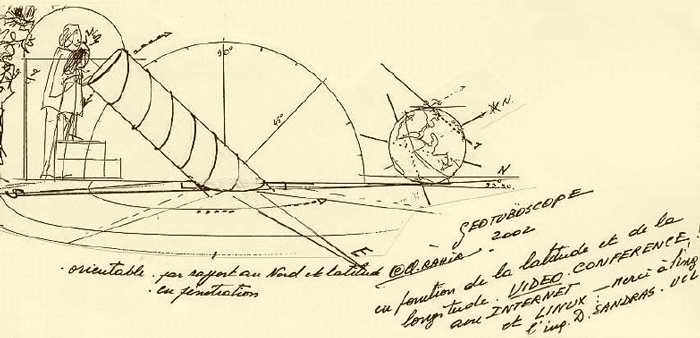 N
90°
45°
N.
N
22°30
S
E
GEOTUBOSCOPE
2002
orientable par rapport au Nord et latitude
en penetration
en fonction de la latitude et de la
longitude. VIDEO CONFERENCE
INTERNET
et LINUX - Merci à l'ing
l'ing. D. SANDRAS. UCL